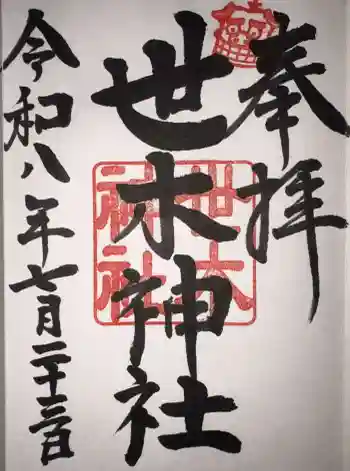 奉拝
世木神社
世木
神社
令和八年七月二十三日